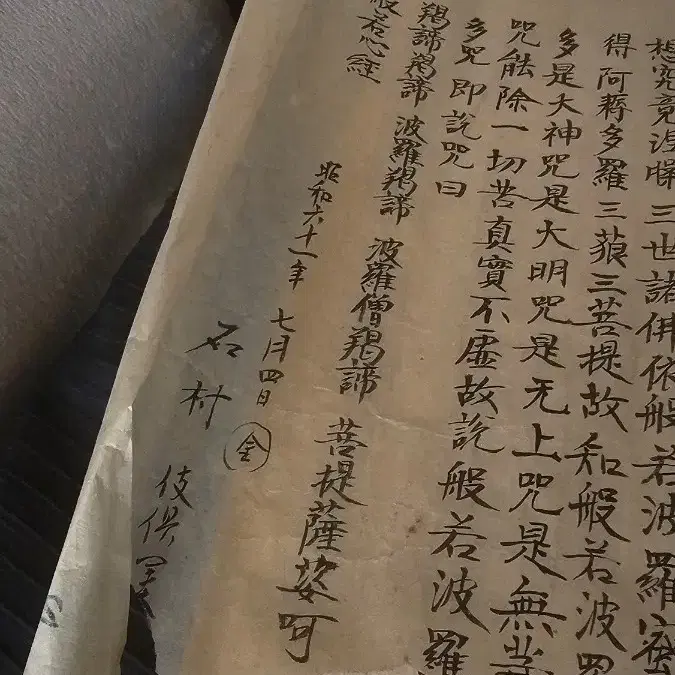 想究竟涅槃三世諸佛依般若波羅蜜
得阿耨多羅三藐三菩提故知般若波羅
多是大神咒是大明咒是无上咒是無等
咒能除一切苦真實不虛故説般若波羅
多咒即説咒曰
羯諦羯諦 波羅羯諦 波羅僧羯諦 菩提薩婆呵
般若心經
昭和六十一年 七月四日 金
石村